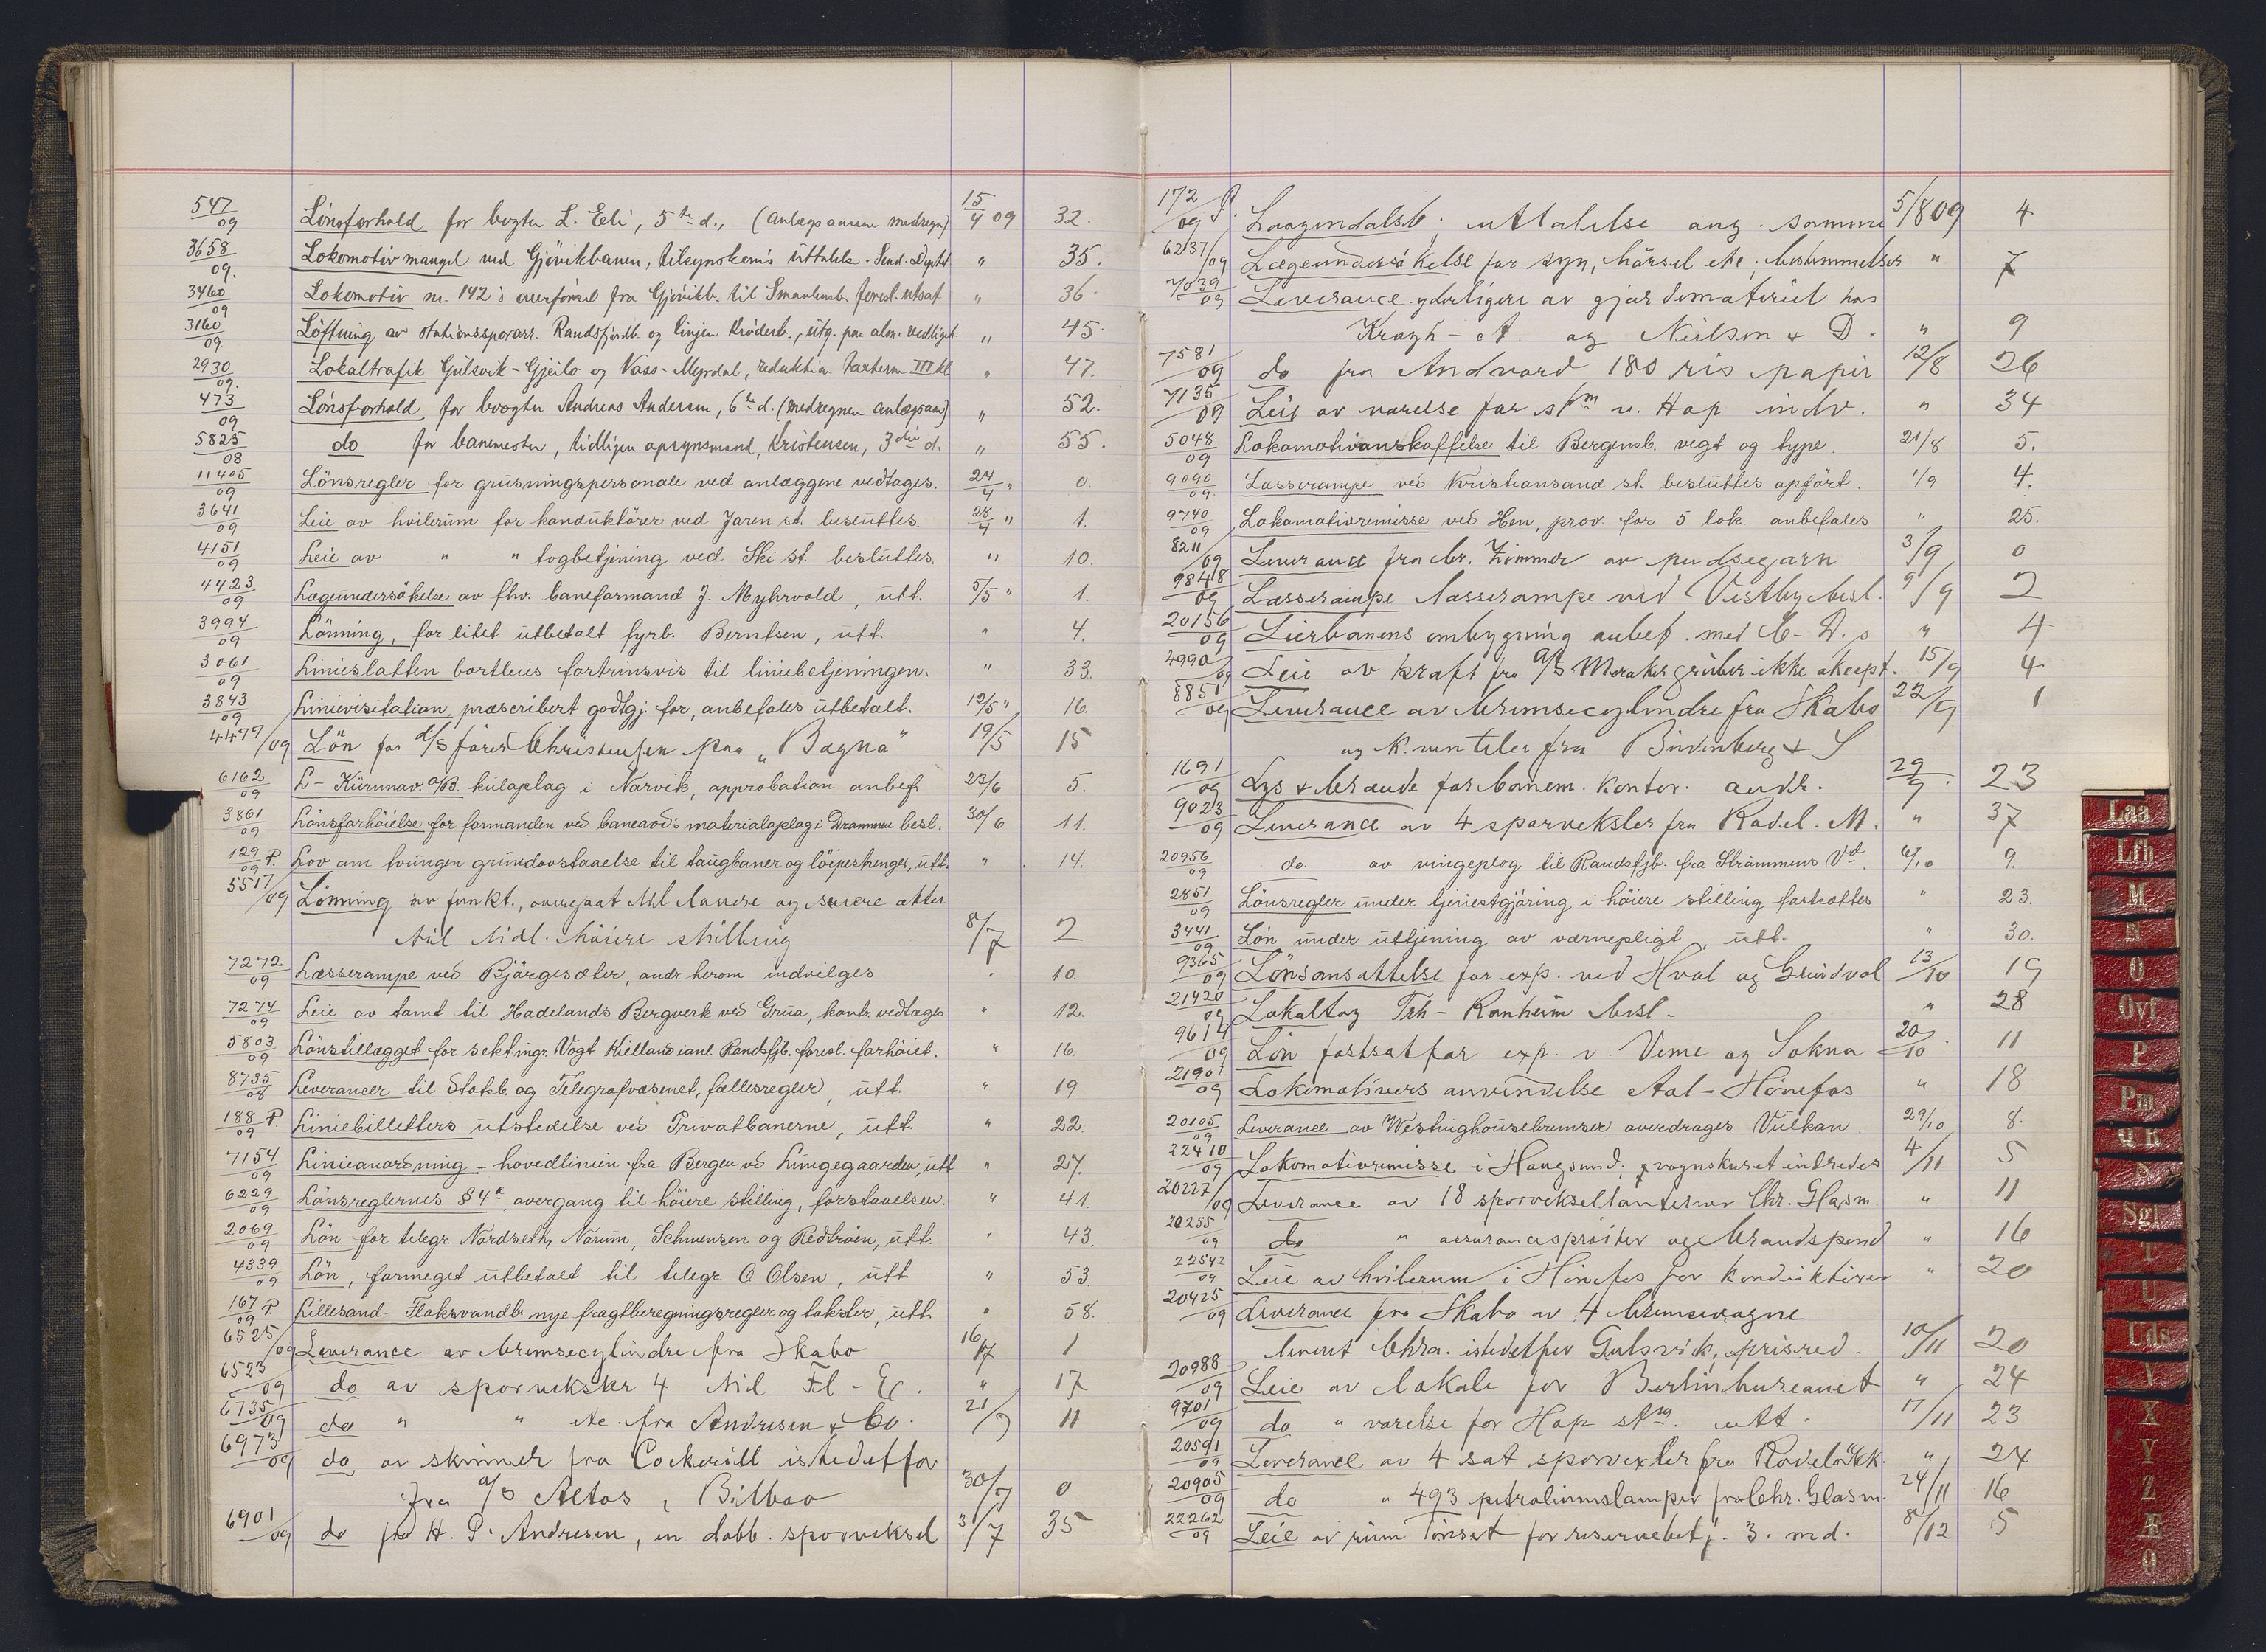 547/09 Lönsforhold for bvogter L. Eeli, 5te d., (anlægsaarene medregn) 15/4 09 32.
3658/09. Lokomotivmangel ved Gjövikbanen, tilsynskom's uttalelse " 35.
3460/09 Lokomotiv nr. 142's overförsel fra Gjövikb. til Smaalensb. forel. utsat " 36.
3160/09. Löftning av stationssporarr. Randsfjordb. og linjen Kröderb., utg. paa alm. vedligeh. " 45.
2930/09. Lokaltrafik Gulsvik-Gjeilo og Voss-Myrdal, reduktion taxterne III kl " 47.
473/09 Lönsforhold for bvogter Andreas Andersen, 6te d. (medregnen anlægsaar) " 52.
5825/08 do for banemester, tidligere opsynsmand, Kristensen, 3die d. " 55.
11405/09 Lönsregler for grusningspersonale ved anlæggene vedtages. 24/4 " 0.
3641/09 Leie av hvilerum for konduktörer ved Jaren st. besluttes. 28/4 " 1.
4151/09 Leie av " " togbetjening ved Ski st. besluttes. " 10.
4423/09 Lægeundersökelse av fhv. baneformand J. Myhrvold, utt. 5/5 " 1.
3994/09 Lönning, for litet utbetalt fyrb. Berntsen, utt. " 4.
3061/09 Linieslatten bortleies fortrinsvis til liniebetjeningen. " 33.
3843/09 Linievisitation præscribert godtgj. for, anbefales utbetalt. 12/5 " 16.
4477/09 Lön for d/s förer Christensen paa "Bagna" 19/5 15
6162/09 L-Kiirunav. a/B. kulaplag i Narvik, approbation anbef. 23/6 5.
3861/09 Lönsforhöielse for formanden ved baneavd's materialoplag i Drammen besl. 30/6 11.
129/09 P. Lov om tvungen grundavstaaelse til taugbaner og löipestrenger, utt. " 14.
5517/09 Lönning av funkt., overgaat til lavere og senere atter
til tidl. höiere stilling 8/7 2
7272/09 Læsserampe ved Bjørgesæter, andr. herom indvilges " 10.
7274/09 Leie av tomt til Hadelands Bergverk ved Grua, kontr. vedtages " 12.
5803/09 Lönstillægget for sektingr. Vogt Kielland i anl. Randsfjb. foresl. forhöiet. " 16.
8735/08 Leverancer til Statsb. og Telegrafvæsenet, fællesregler, utt. " 19
188/09 P. Liniebilletters utstedelse ved Privatbanerne, utt. " 22.
7154/09 Linieanordning - hovedlinien fra Bergen vd Lungegaarden, utt " 27.
6229/09 Lönsreglernes § 4c overgang til höiere stilling, forstaaelsen. " 41.
2069/09 Lön for telegr. Nordseth, Norum, Schwensen og Redtröen, utt. " 43.
4339/09 Lön, formeget utbetalt til telegr. O Olsen, utt. " 53.
167/09 P. Lillesand-Flaksvandb nye fragtberegningsregler og takster, utt. " 58.
6525/09 Leverance av bremsecylindre fra Skabo 16/7 1
6523/09 do av sporveksler 4 til Fl-E. " 17
6735/09 do " " etc. fra Andresen & Co. 21/7 11
6973/09 do av skinner fra Cockerill istedetfor
fra a/s Altos, Bilbao 30/7 0
6901/09 do fra H. P. Andresen, en dobb. sporveksel 3/7 35
172/09 P. Laagendalsb; uttalelse ang. samme 5/8 09 4
6237/09 Lægeundersökelse for syn, hørsel etc; bestemmelser " 7
7039/09 Leverance yderligere av gjerdemateriel hos
Kragh-A. og Nielson & D. " 9
7581/09 do fra Andvord 180 ris papir 12/8 26
7135/09 Leie av værelse for stm v. Hop indv. " 34
5048/09 Lokomotivanskaffelse til Bergensb. vegt og type. 21/8 5.
9090/09. Læsserampe ved Kristiansand st. besluttes opfört. 1/9 4.
9740/09 Lokomotivremisse ved Hen, prov. for 5 lok. anbefales " 25.
8211/09 Leverance fra br. Zimmer av pudsegarn 3/9 0
9848/09 Læsserampe Læsserampe ved Vestby besl. 9/9 2
20156/09 Lierbanens ombygning anbef. med C-D.s " 4
4990/09 Leie av kraft fra a/s Meraker gruber ikke akcept. 15/9 4
8851/09 Leverance av bremsecylindre fra Skabo 22/9 1
og k.ventiler fra
1691/09 Lys & brænde for banem. kontor. andr. 29/9. 23
9023/09 Leverance av 4 sporveksler fra Rodel. M. " 37
20956/09 do. av vingeplog til Randsfjb. fra Strömmens Vd. 6/10 9.
2851/09 Lönsregler under tjenestgjöring i höiere stilling fortsættes " 23.
3441/09 Lön under uttjening av værnepligt, utt. " 30.
9365/09 Lönsansættelse for exp. ved Hval og Grindvol 13/10 19
21420/09 Lokaltog Trh-Ranheim besl- " 28
9614/09 Lön fastsat for exp. v. Veme og Sokna 20/10. 11
21901/09 Lokomotivers anvendelse Aal-Hönefos " 18
20105/09 Leverance av Westinghousebremser overdrages Vulkan. 29/10 8.
22410/09 Lokomotivremisse i Haugsund; vognskuret indredes 4/11 5
20227/09 Leverance av 18 sporveksellanterner Chr. Glasm. " 11
20255/09 do " assurancesprøiter og brandspand " 16
22542/09 Leie av hvilerum i Hönefos for konduktörer " 20
20425/09 Leverance fra Skabo av 4 bremsevogne
levert Chra. istedetfor Gulsvik, prisred. 10/11 20
20988/09 Leie av lokale for Berlinbureauet " 24
9701/09 do " værelse for Hop stm. utt. 17/11 23
20591/09 Leverance av 4 sat sporvexler fra Rodelökk. " 24
20905/09 do " 493 petroliumslamper fra Chr. Glasm. 24/11 16
22262/09 Leie av rum Tönset for reservebetj. 3. md. 8/12 5
Laa
Lfh
M
N
O
Ovf
P
Pm
Q R
S
Sgl
T
U
Uds
V
X
Y
Z
Æ
Ø